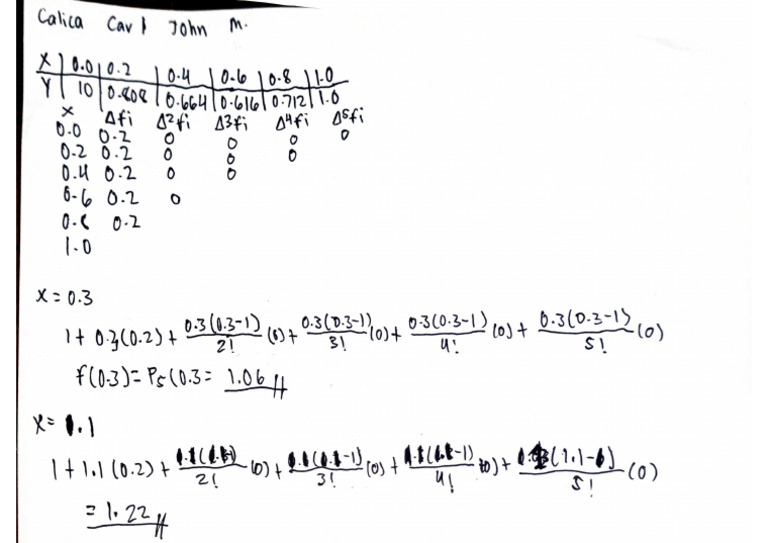 Calica Carl John M.
X | 0.0 | 0.2 | 0.4 | 0.6 | 0.8 | 1.0
Y | 10 | 0.808 | 0.664 | 0.616 | 0.712 | 1.0
x Δfi Δ²fi Δ3fi Δ⁴fi Δ⁵fi
0.0 0.2 0 0 0 0
0.2 0.2 0 0 0
0.4 0.2 0 0
0.6 0.2 0
0.8 0.2
1.0
x = 0.3
1 + 0.3(0.2) + 0.3(0.3-1)/2! (0) + 0.3(0.3-1)/3! (0) + 0.3(0.3-1)/4! (0) + 0.3(0.3-1)/5! (0)
f(0.3) = P5(0.3 = 1.06
x = 1.1
1 + 1.1(0.2) + /2! (0) + /3! (0) + /4! (0) + /5! (0)
= 1.22